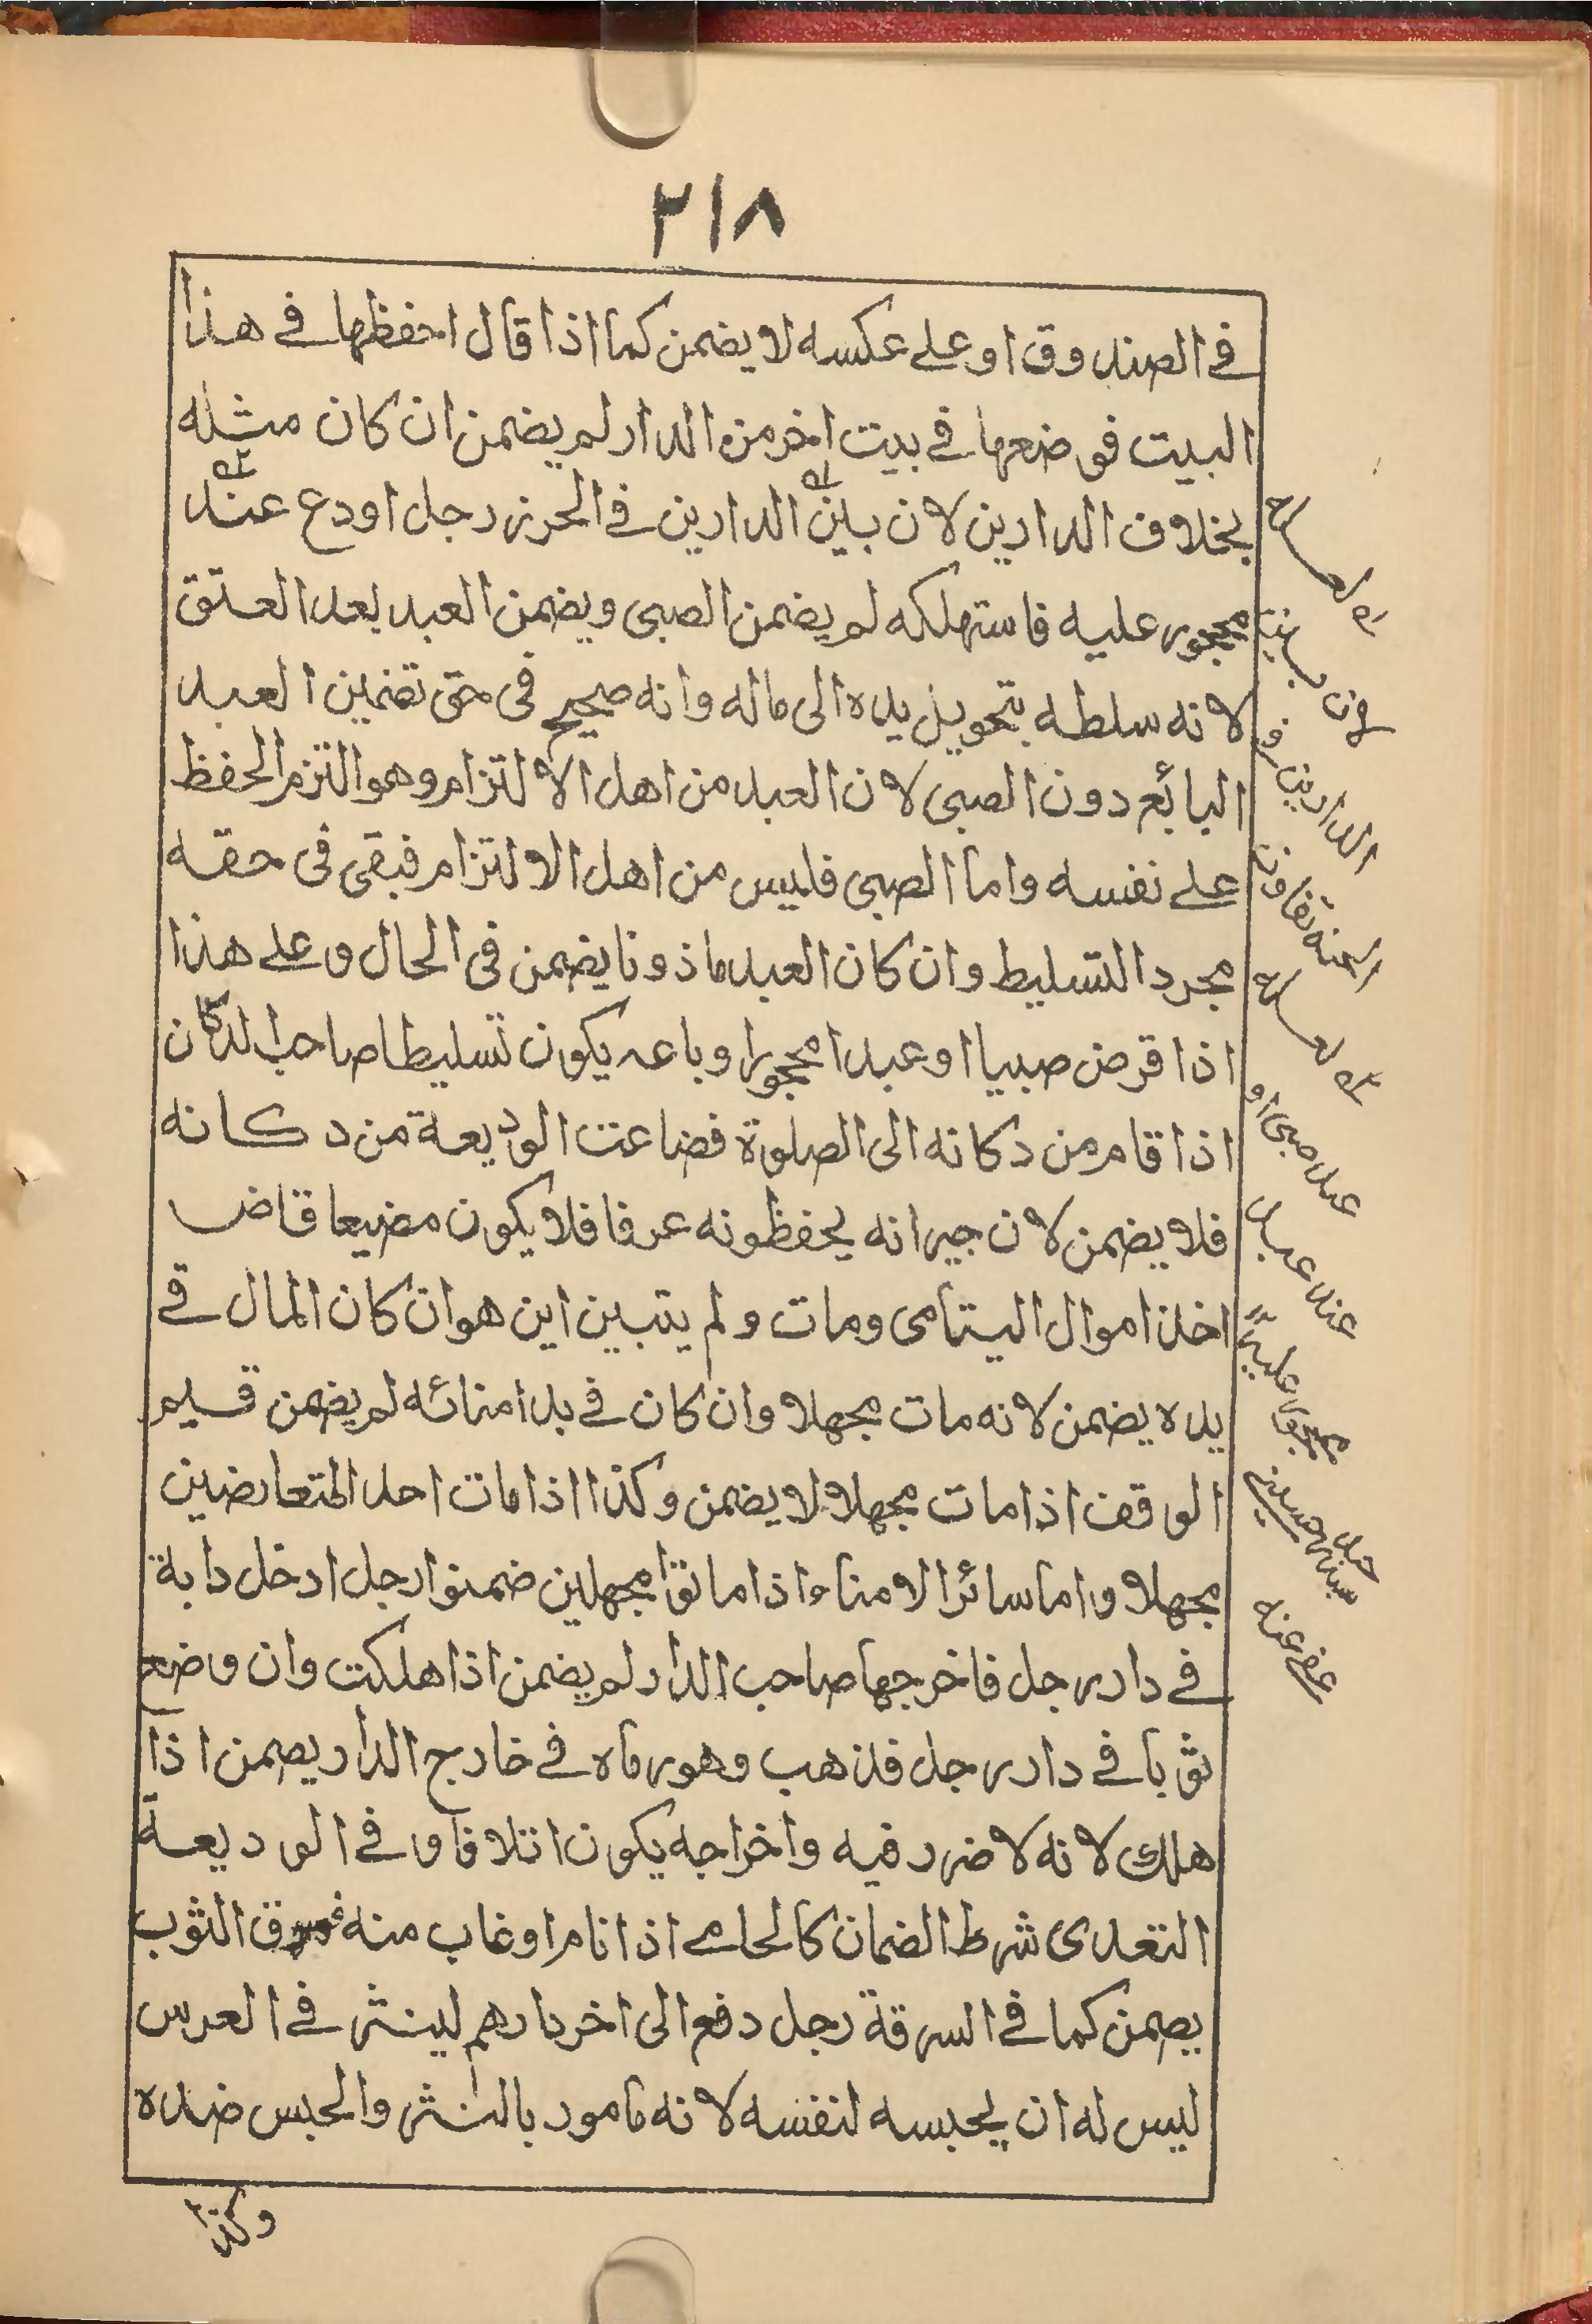 ٢١٨
في الصندوق او على عكسه لا يضمن كما اذا قال احفظها في هذا
البيت فوضعها في بيت اخر من الدار لم يضمن ان كان مثله
بخلاف الدارين لان بين الدارين في الحرز رجل اودع عند
محجور عليه فاستهلكه لم يضمن الصبي ويضمن العبد بعد العتق
لانه سلطه بتحويل يده الى ماله وانه صحيح في حق تضمين العبد
البائع دون الصبي لان العبد من اهل الالتزام وهو التزم الحفظ
على نفسه واما الصبي فليس من اهل الالتزام فبقى في حقه
مجرد التسليط وان كان العبد ماذونا يضمن في الحال وعلى هذا
اذا قرض صبيا او عبدا محجورا وباعه يكون تسليطا صاحب الدكان
اذا قام من دكانه الى الصلوة فضاعت الوديعة من دكانه
فلا يضمن لان جيرانه يحفظونه عرفا فلا يكون مضيعا قاض
اخذ اموال اليتامى ومات ولم يتبين اين هو ان كان المال في
يده يضمن لانه مات مجهلا وان كان في يد امنائه لم يضمن قيم
الوقف اذا مات مجهلا لا يضمن وكذا اذا مات احد المتعارضين
مجهلا واما سائر الامناء اذا ماتوا مجهلين ضمنوا رجل ادخل دابة
في دار رجل فاخرجها صاحب الدار لم يضمن اذا هلكت وان وضع
ثوبا في دار رجل فذهب وهو رماه في خارج الدار يضمن اذا
هلك لانه لا ضرر فيه واخراجه يكون اتلافا وفي الوديعة
التعدى شرط الضمان كالحامي اذا نام او غاب منه فسرق الثوب
يضمن كما في السرقة رجل دفع الى اخر دارهم لينثر في العرس
ليس له ان يحبسه لنفسه لانه مامور بالنثر والحبس ضده
وكذا
لان بين
الدارين
تفاوت
عبد صبي او
عند عبد
محجور عليه
عفى عنه